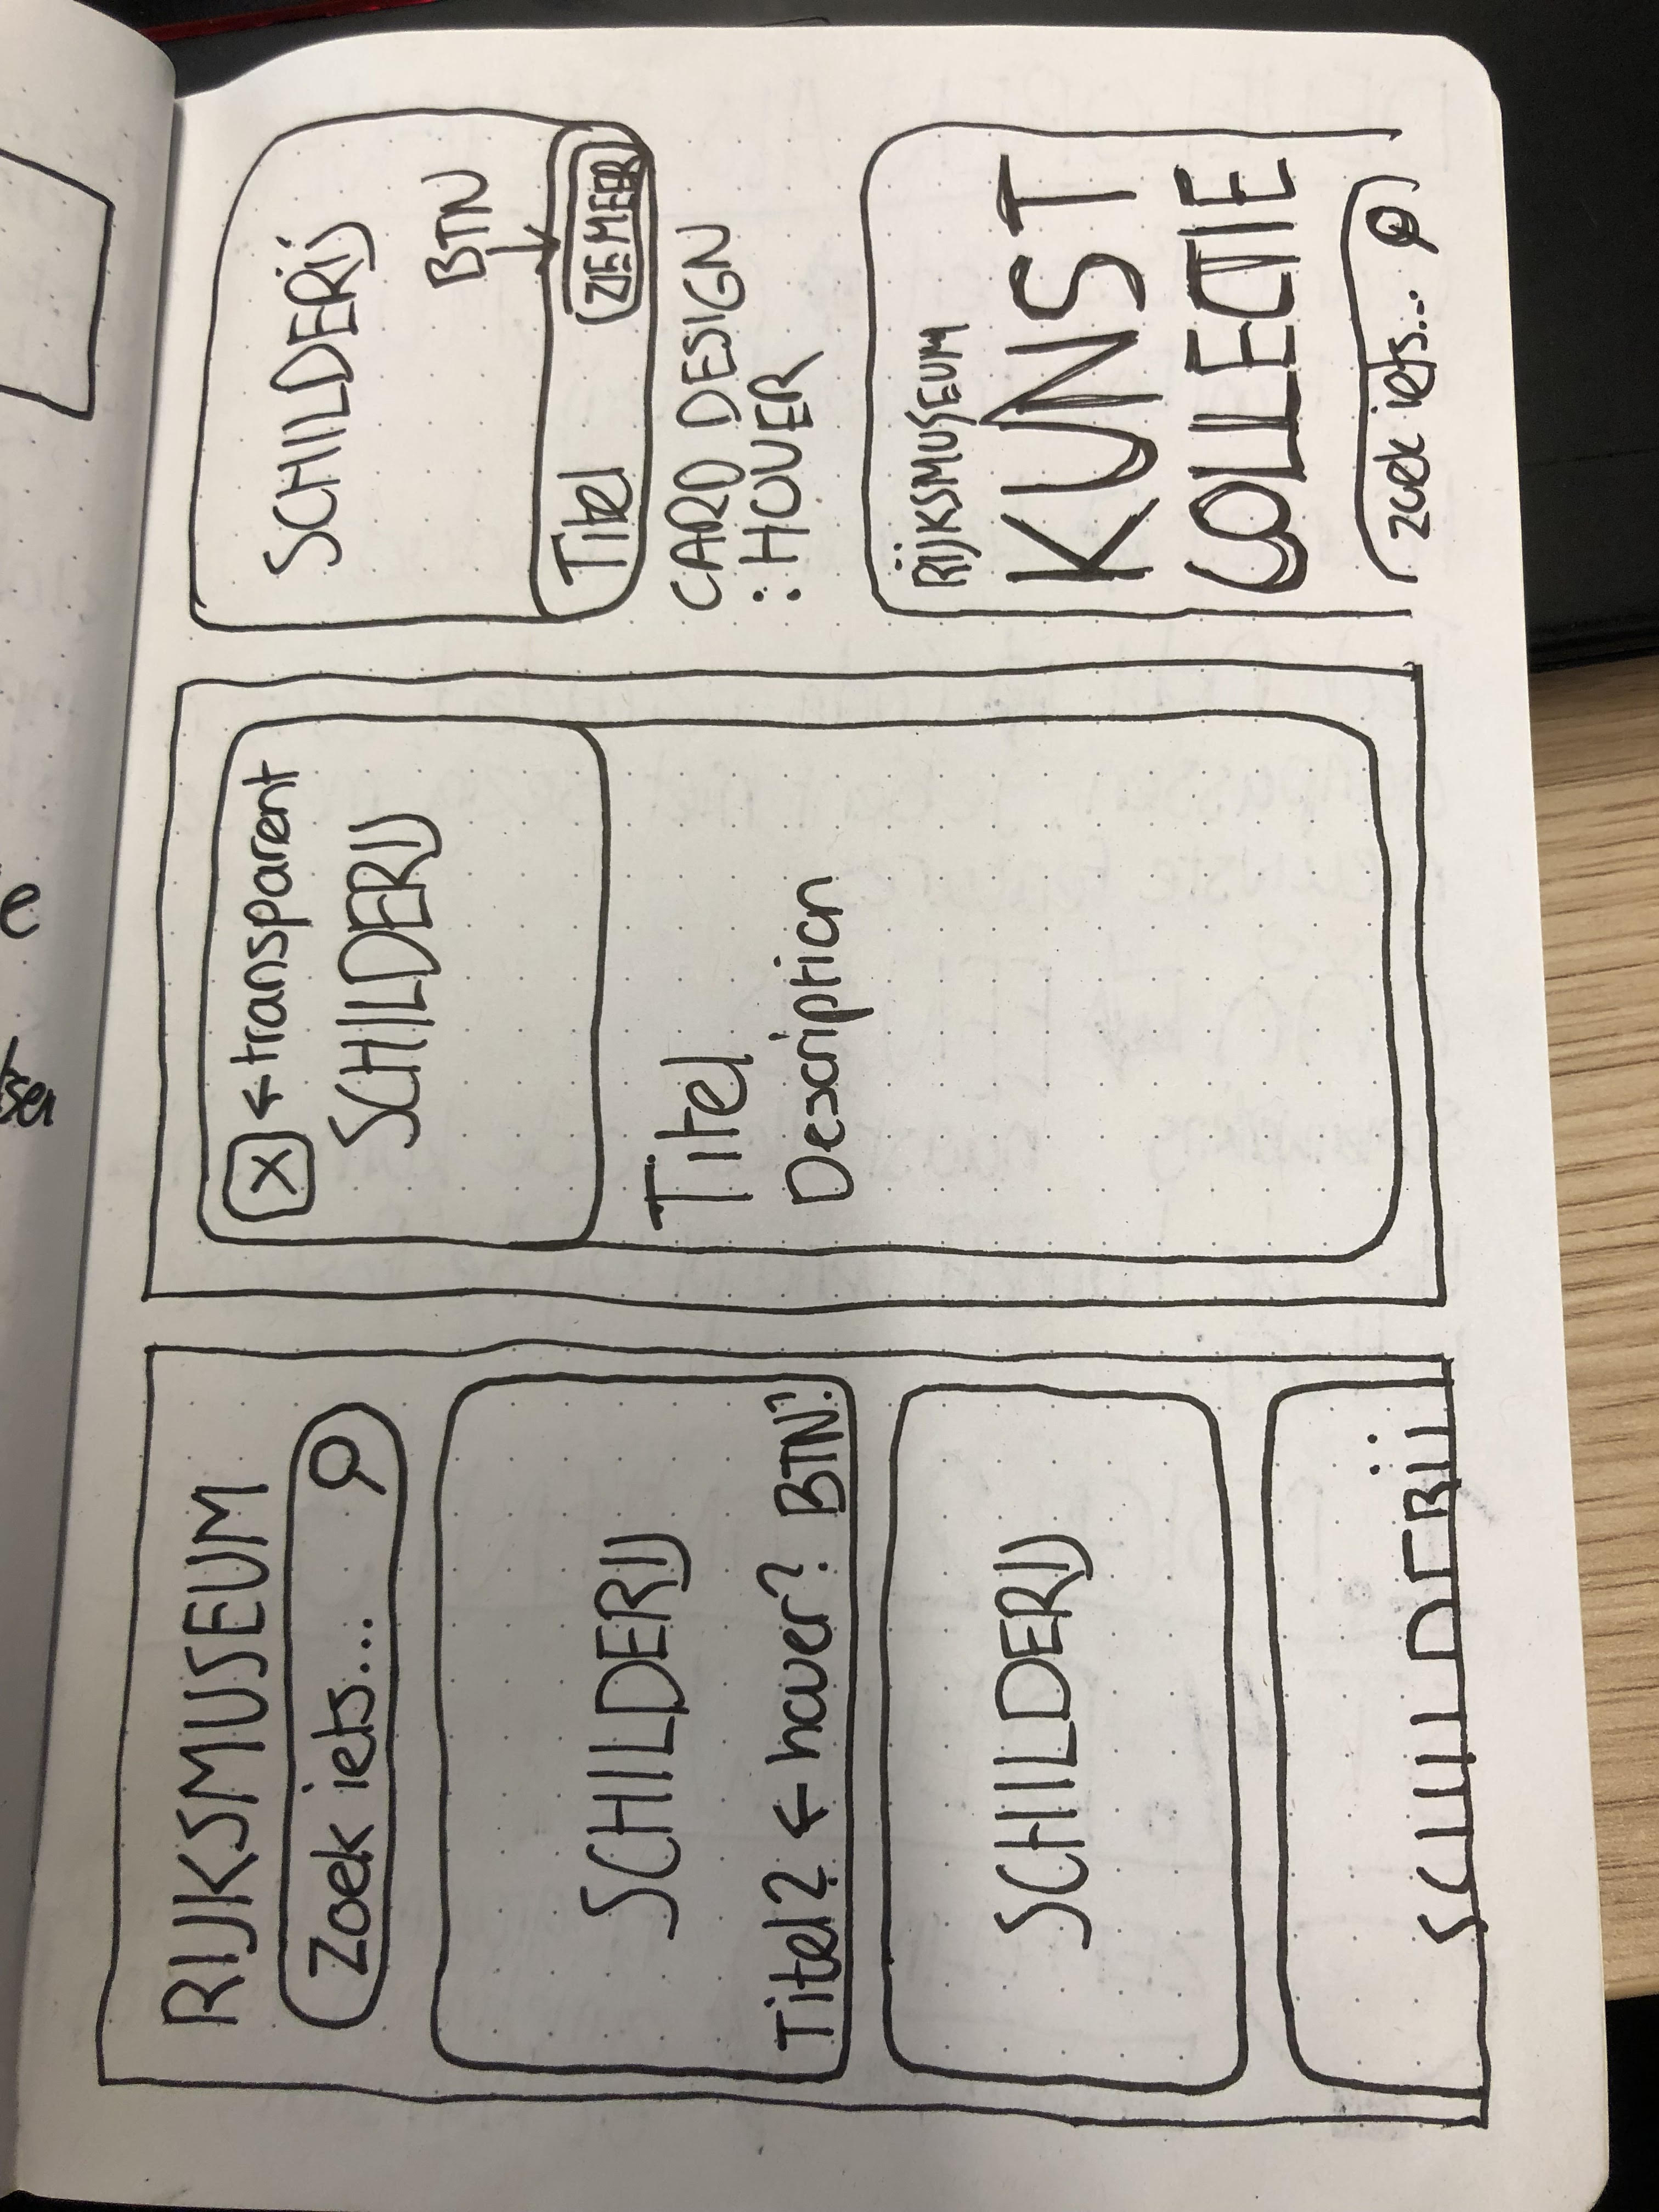 RIJKSMUSEUM
Zoek iets...
SCHILDERIJ
Titel? ← hover? BTN?
SCHILDERIJ
SCHILDERIJ
X ← transparent
SCHILDERIJ
Titel
Description
SCHILDERIJ
BTN
Titel
ZIE MEER
CARD DESIGN
:HOVER
RIJKSMUSEUM
KUNST
COLLECTIE
zoek iets...
e